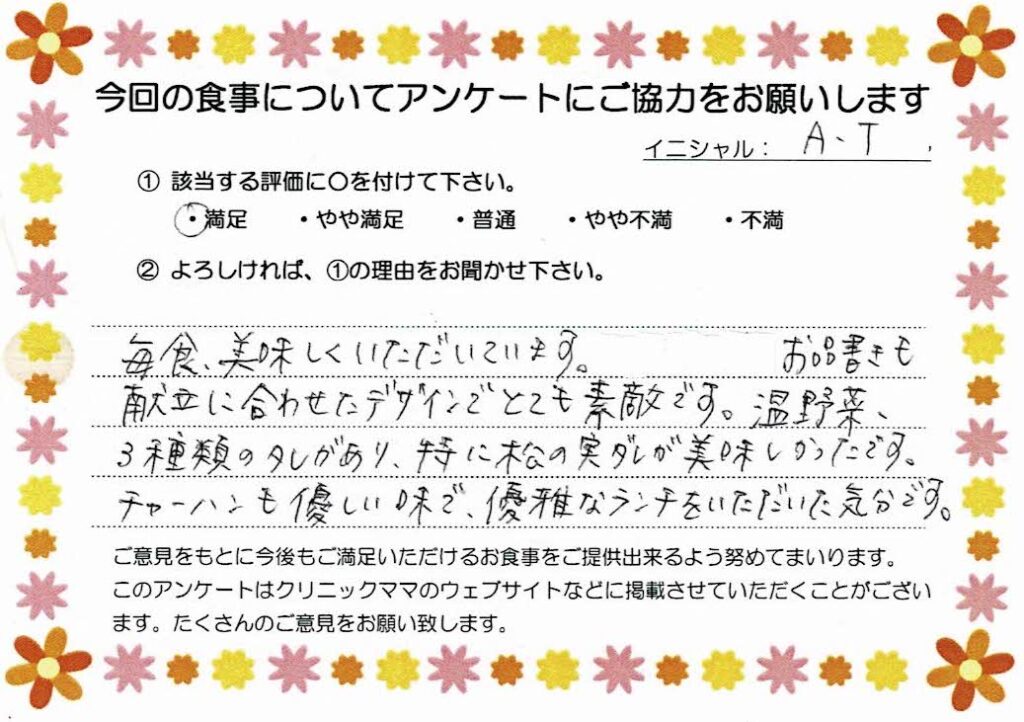 今回の食事についてアンケートにご協力をお願いします
イニシャル： A・T
① 該当する評価に〇を付けて下さい。
・満足 ・やや満足 ・普通 ・やや不満 ・不満
② よろしければ、①の理由をお聞かせ下さい。
毎食、美味しくいただいています。 お品書きも
献立に合わせたデザインでとても素敵です。温野菜、
3種類のタレがあり、特に松の実ダレが美味しかったです。
チャーハンも優しい味で、優雅なランチをいただいた気分です。
ご意見をもとに今後もご満足いただけるお食事をご提供出来るよう努めてまいります。
このアンケートはクリニックママのウェブサイトなどに掲載させていただくことがござい
ます。たくさんのご意見をお願い致します。